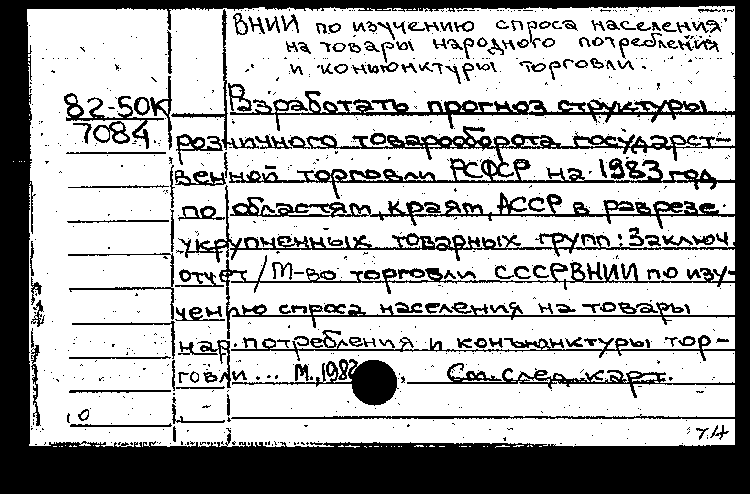 ВНИИ по изучению спроса населения
на товары народного потребления
и конъюнктуры торговли.
82-50К
7084
Разработать прогноз структуры
розничного товарооборота государст-
венной торговли РСФСР на 1983 год
по областям, краям, АССР в разрезе
укрупненных товарных групп: Заключ.
отчет / М-во торговли СССР, ВНИИ по изу-
чению спроса населения на товары
нар. потребления и конъюнктуры тор-
говли... М., 1982
См. след. карт.